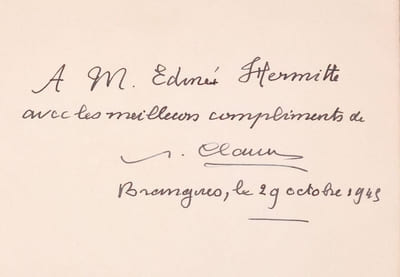 A M. Edmé Hermitte
avec les meilleurs compliments de
p. Claudel
Brangues, le 29 octobre 1945